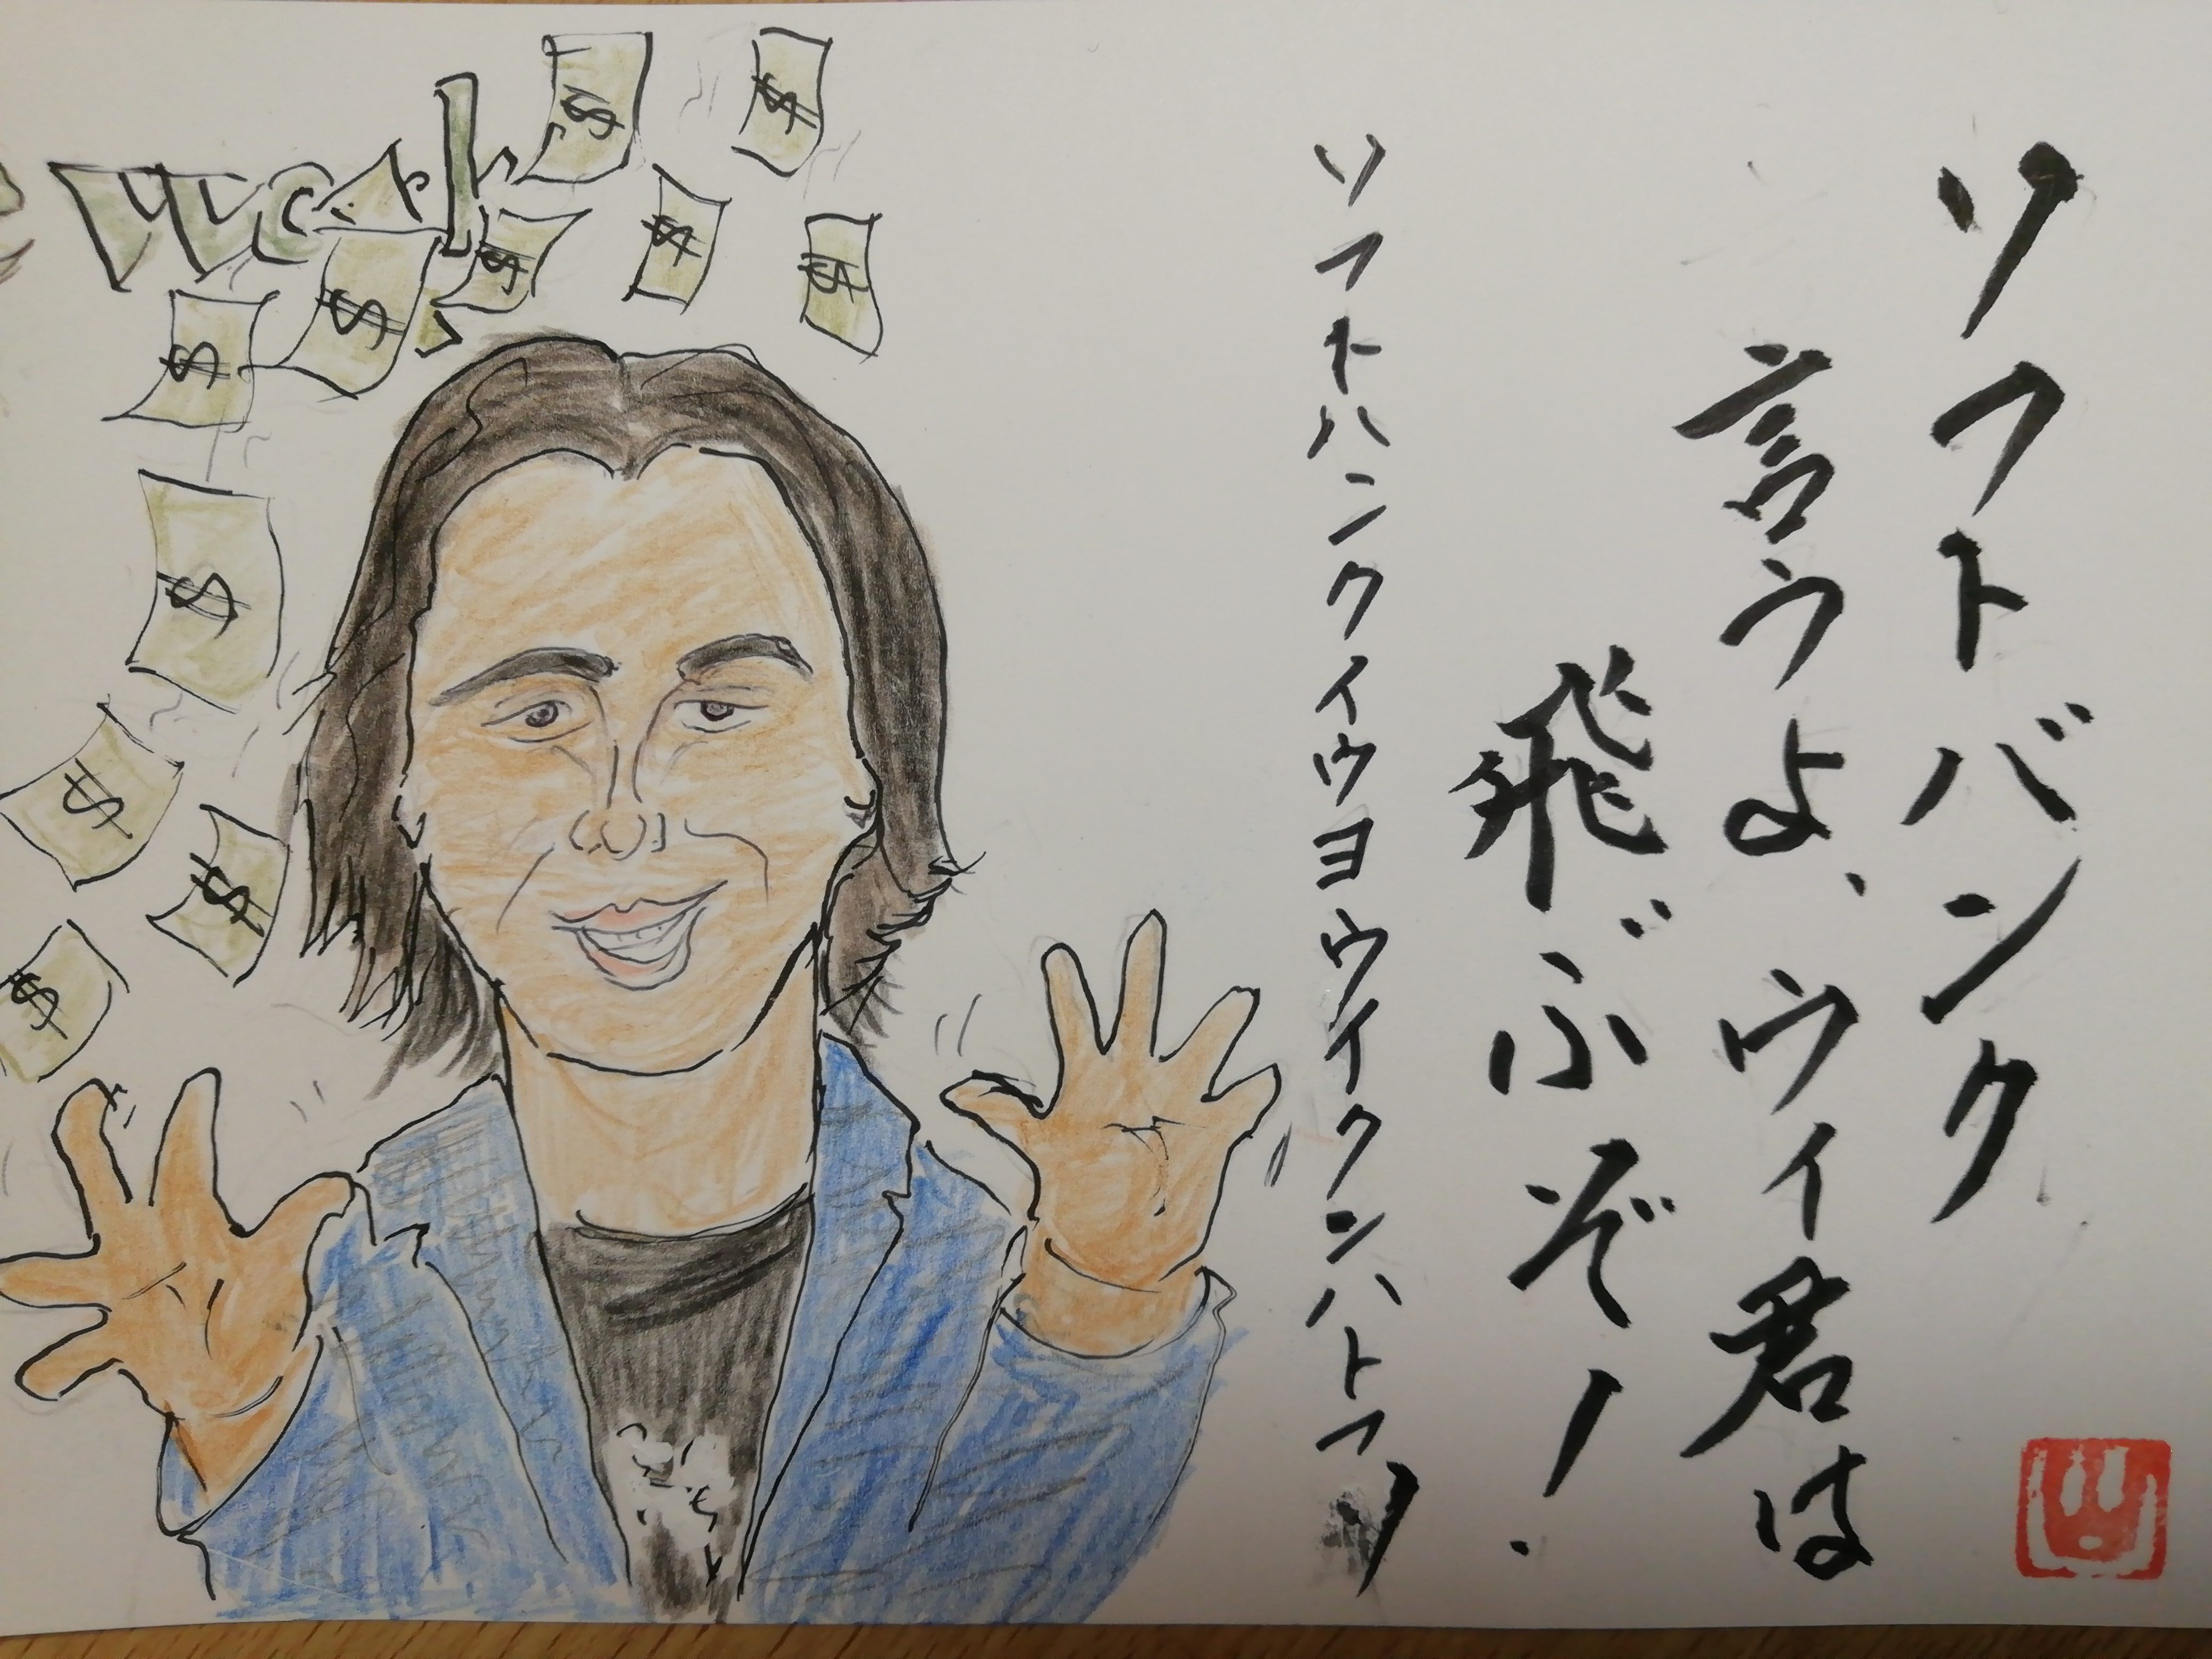 ソフトバンク
言うよ、ウィ君は
飛ぶぞ!
ソフトハンクイウヨウイクンハトフソ
$
$
$
$
$
$
$
$
$
$
$